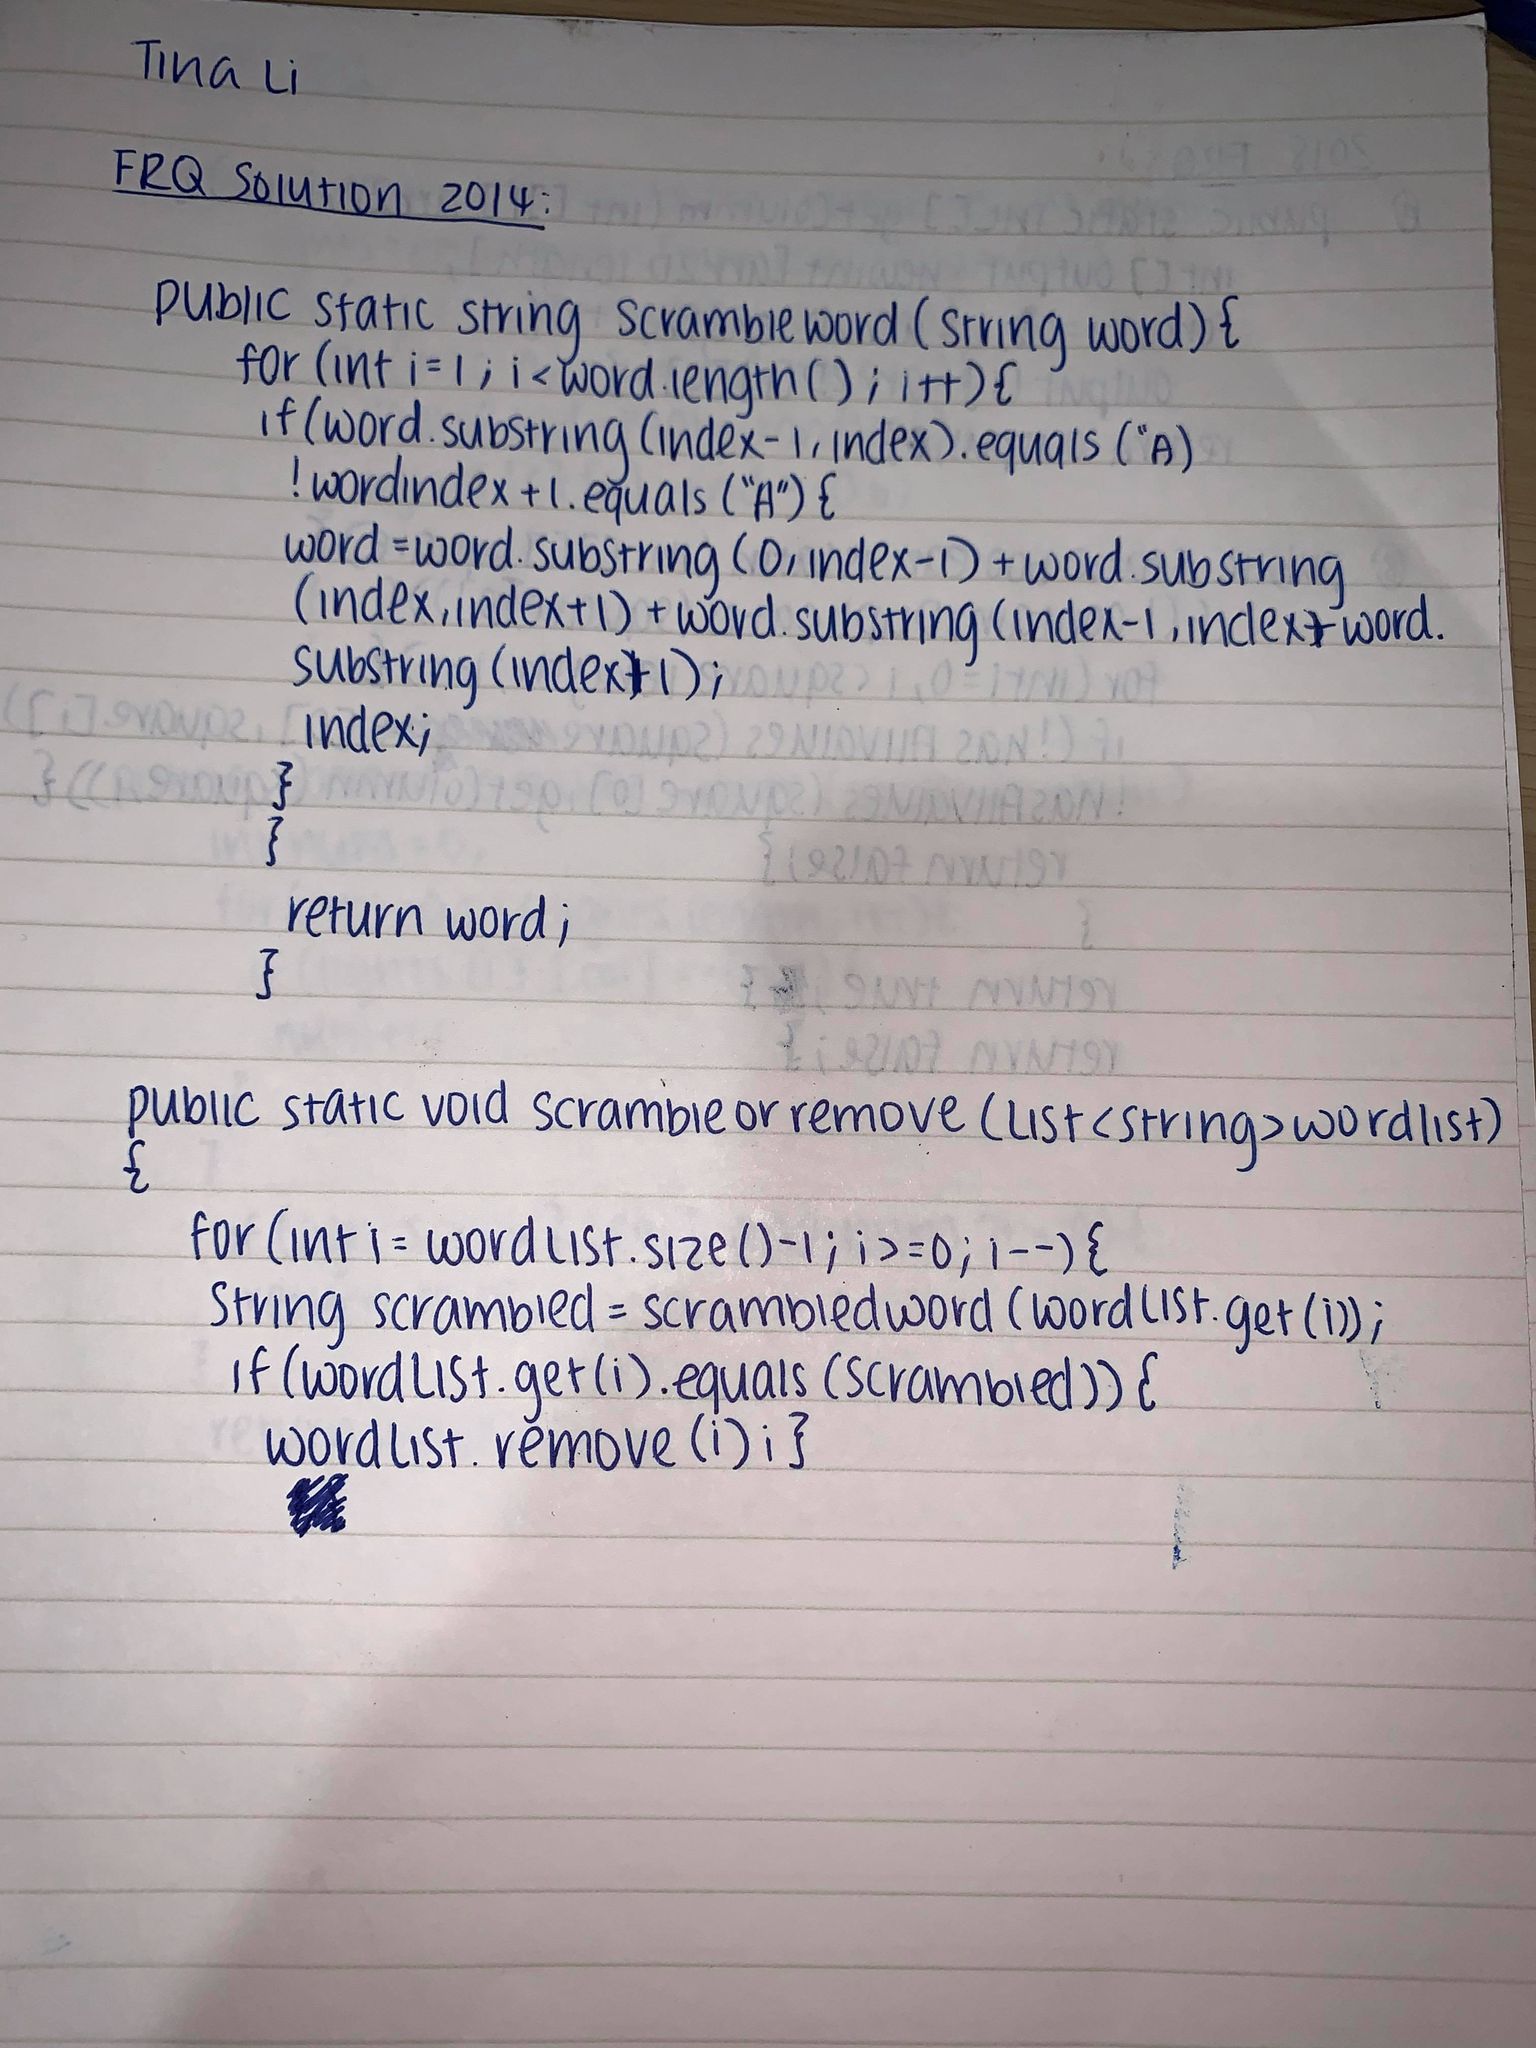 Tina Li
FRQ Solution 2014:
public static string scrambleword (string word) {
for (int i=1; i<word.length(); i++){
if (word.substring (index-1, index).equals ("A)
!wordindex+1.equals ("A") {
word=word.substring (0, index-1) +word.substring
(index, index+1) +word.substring (index-1, index+word.
substring (index+1);
index;
}
}
return word;
}
public static void scramble or remove (List<string> wordlist)
{
for (int i = wordList.size()-1; i>=0; i--) {
String scrambled = scrambledword (wordList.get(i));
if (wordList.get(i).equals (scrambled)) {
wordList.remove (i); }